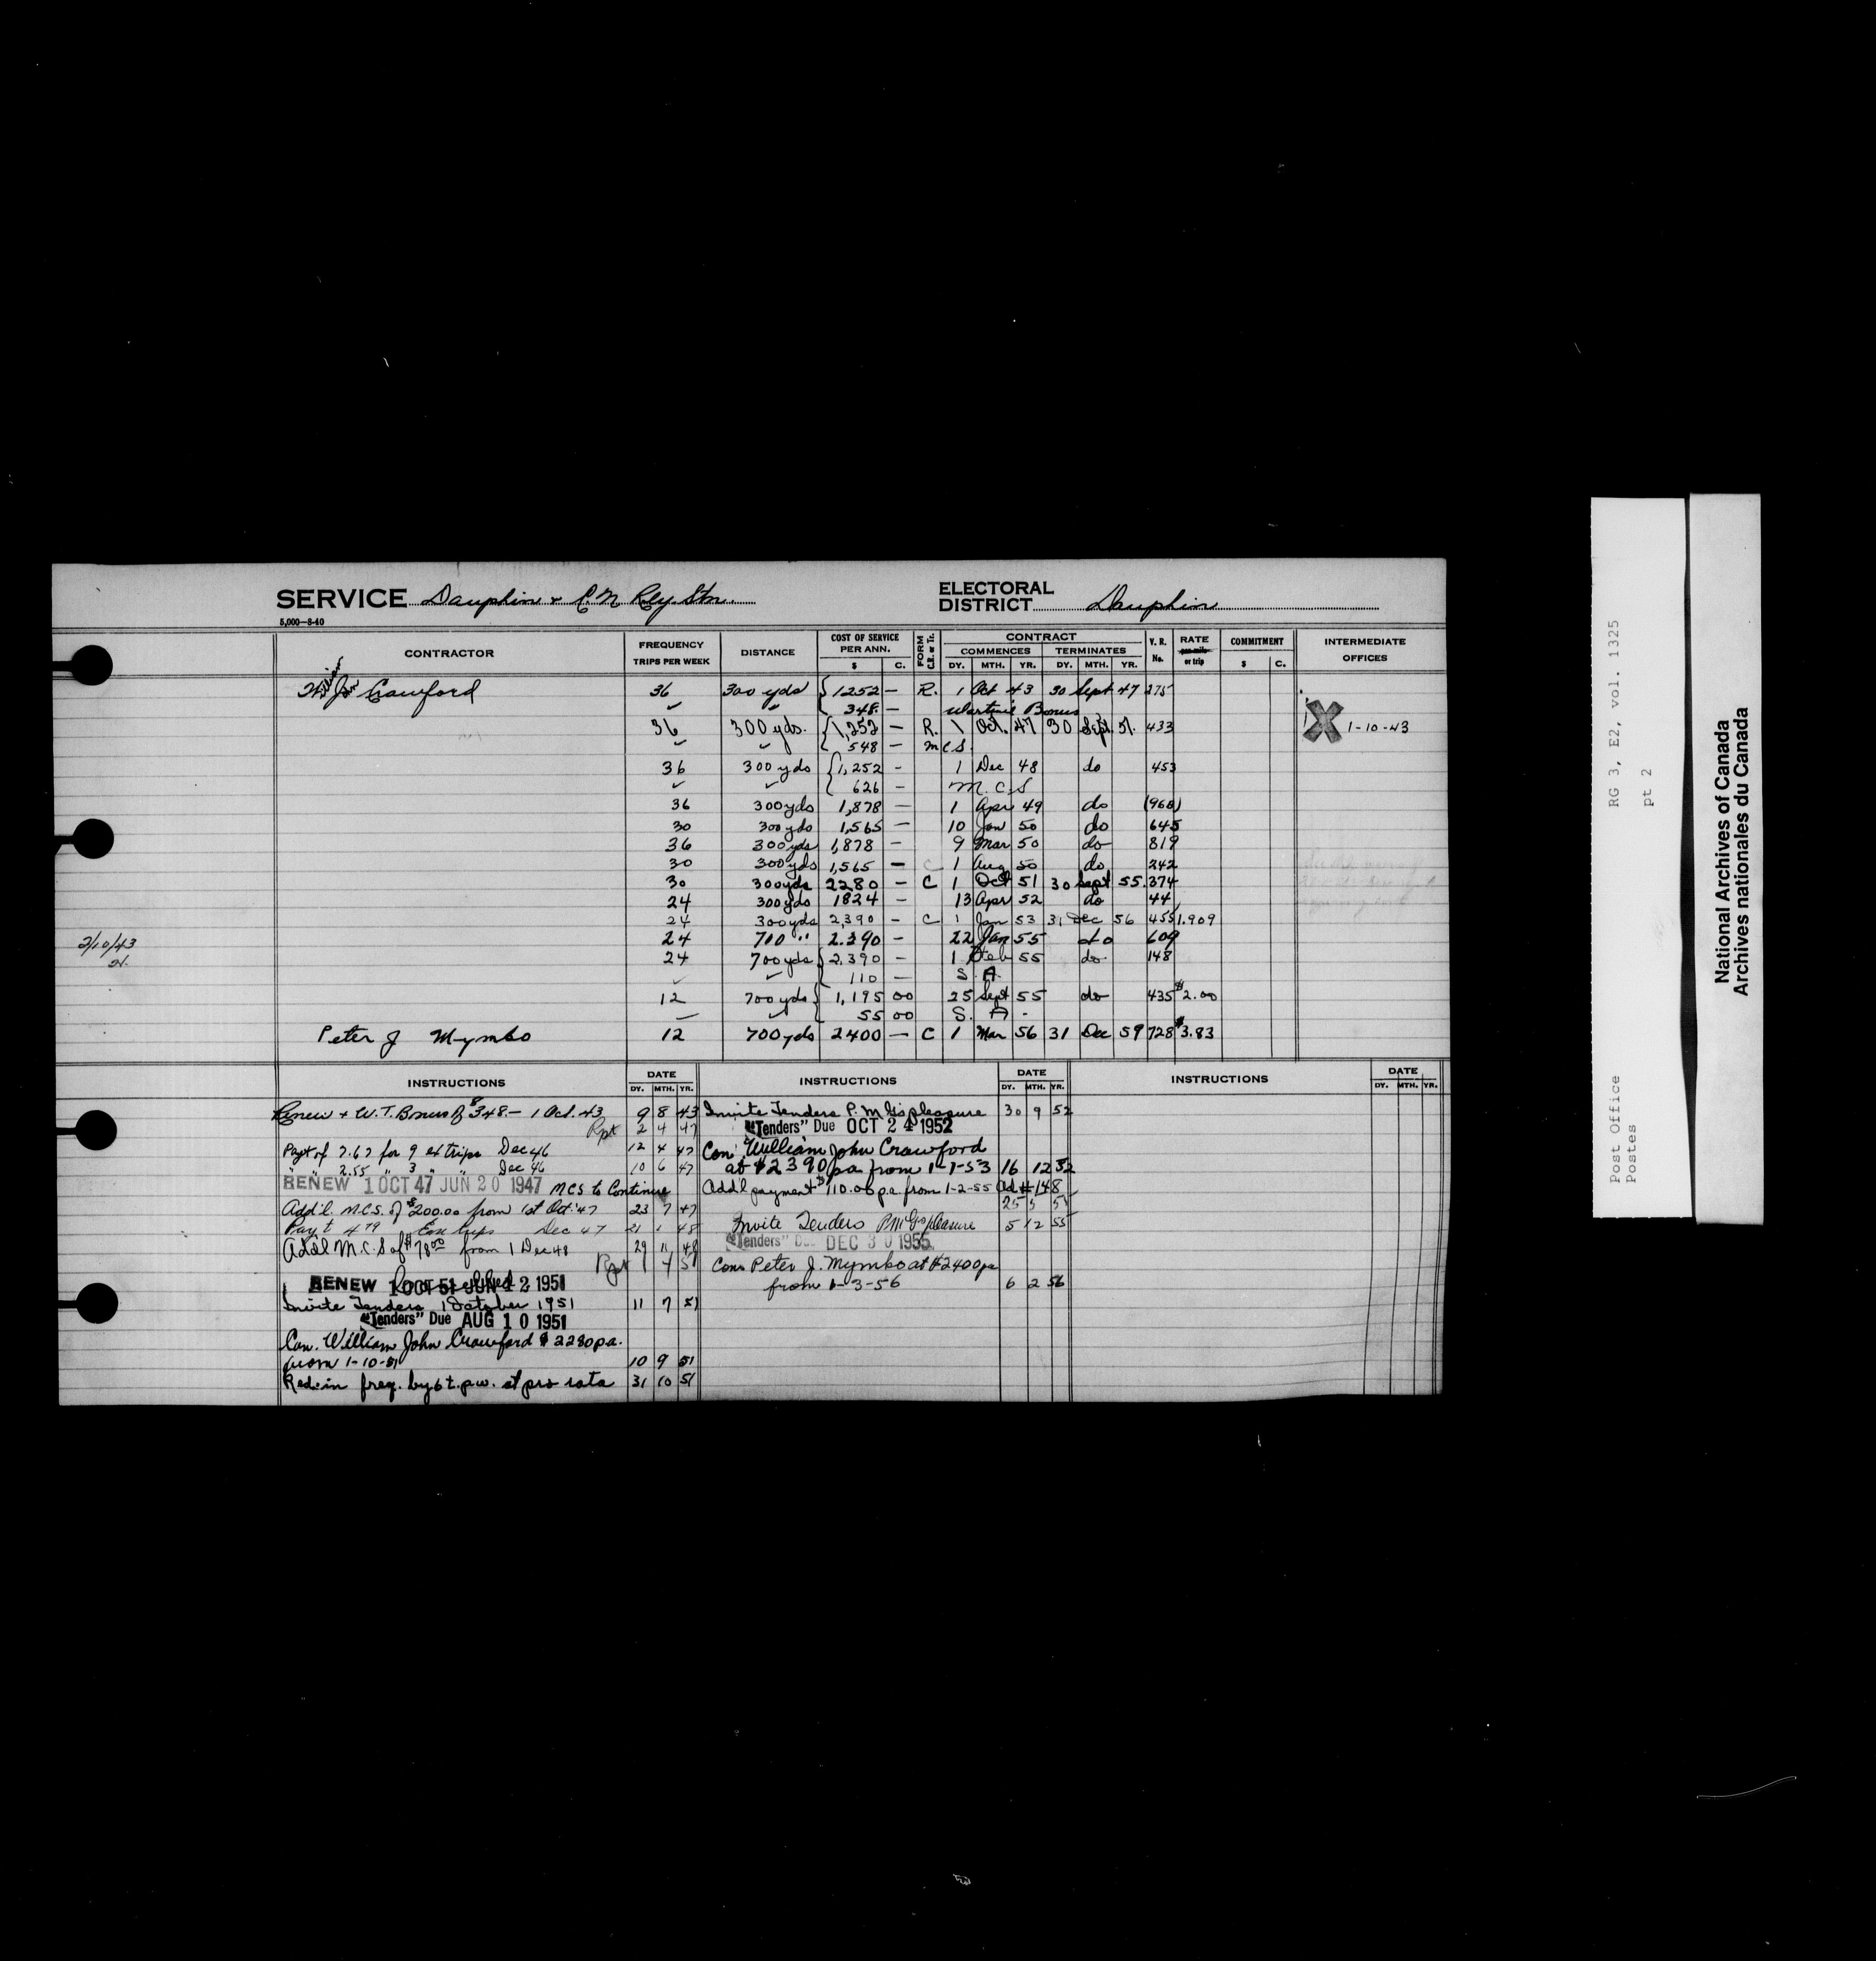 SERVICE Dauphin & C.N Rly Stn. ELECTORAL DISTRICT Dauphin
5,000—8-40
CONTRACTOR FREQUENCY TRIPS PER WEEK DISTANCE COST OF SERVICE PER ANN. $ C. FORM C.R. or Tr. CONTRACT COMMENCES DY. MTH. YR. TERMINATES DY. MTH. YR. Y. R. No. RATE per mile or trip COMMITMENT $ C. INTERMEDIATE OFFICES
William John Crawford 36 300 yds 1252 — R. 1 Oct 43 30 Sept 47 275
✓ ✓ 348. — Wartime Bonus
36 300 yds. 1,252 — R. 1 Oct. 47 30 Sept. 51. 433 X 1-10-43
✓ ✓ 548 — M C S.
36 300 yds 1,252 - 1 Dec 48 do 453
✓ ✓ 626 - M. C. S
36 300 yds 1,878 — 1 Apr 49 do (968)
30 300 yds 1,565 — 10 Jan 50 do 645
36 300 yds 1,878 - 9 Mar 50 do 819
30 300 yds 1,565 — C 1 Aug 50 do 242
30 300 yds 2280 - C 1 Oct 51 30 Sept 55. 374
24 300 yds 1824 - 13 Apr 52 do 44
24 300 yds 2,390 - C 1 Jan 53 31 Dec 56 455 1.909
2/10/43
24 700 " 2.390 - 22 Jan 55 do 609
24 700 yds 2,390 - 1 Feb 55 do. 148
✓ ✓ 110 — S. A.
12 700 yds 1,195 00 25 Sept 55 do 435 $2.00
55 00 S. A -
Peter J Mymko 12 700 yds 2400 — C 1 Mar 56 31 Dec 59 728 $3.83
INSTRUCTIONS DATE DY. MTH. YR. INSTRUCTIONS DATE DY. MTH. YR. INSTRUCTIONS DATE DY. MTH. YR.
Renew + W.T. Bonus of $348.— 1 Oct. 43 9 8 43
Rpt 2 4 47
Payt of 7.67 for 9 ex trips Dec 46 12 4 47
" " 2.55 " 3 " " Dec 46 10 6 47
RENEW 1 OCT 47 JUN 20 1947 MCS to Continue
Add'l. M.C.S. of $200.00 from 1st Oct. 47 23 7 47
Pay't 4 79 Exx trips Dec 47 21 1 48
Add'l M.C.S of $78.00 from 1 Dec 48 29 11 48
Rpt 1 4 51
RENEW 1 OCT 51 JUN 12 1951
Cancelled
Invite Tenders 1 October 1951 11 7 51
"Tenders" Due AUG 10 1951
Con. William John Crawford $ 2280 pa.
from 1-10-51 10 9 51
Red. in freq. by 6 t.p.w. at pro rata 31 10 51
Invite Tenders P.M Gs pleasure 30 9 52
"Tenders" Due OCT 24 1952
Con William John Crawford
at $2390 pa from 1-1-53 16 12 52
Add'l payment $110.00 p.a. from 1-2-55 Ad # 148
25 5 55
Invite Tenders PM Gs pleasure 5 12 55
"Tenders" Due DEC 30 1955
Con Peter J. Mymko at $2400 pa
from 1-3-56 6 2 56
RG 3, E2, vol. 1325
pt 2
Post Office
Postes
National Archives of Canada
Archives nationales du Canada